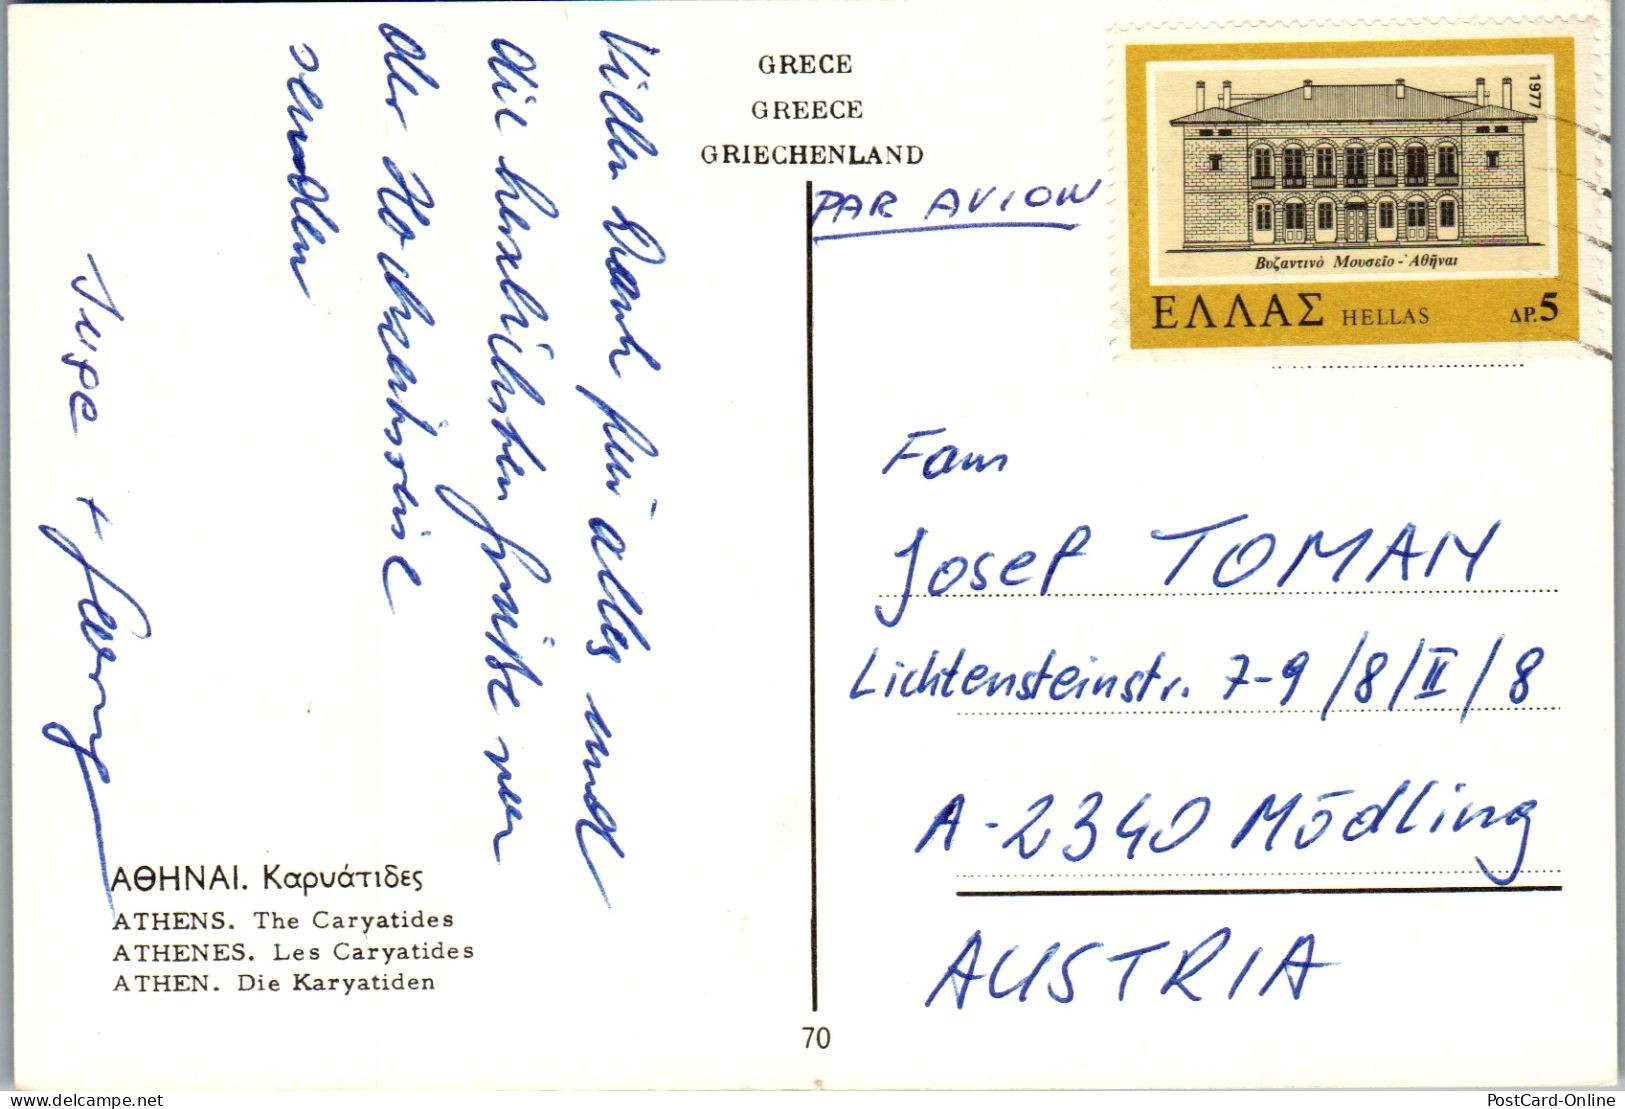 GRECE
GREECE
GRIECHENLAND
PAR AVION
1977
Βυζαντινὸ Μουσεῖο - Ἀθῆναι
ΕΛΛΑΣ HELLAS ΔΡ. 5
Vielen Dank für alles und
die herzlichsten Grüße von
der Hochzeitsreise
senden
Inge + Georg
Fam
Josef TOMAN
Lichtensteinstr. 7-9/8/II/8
A-2340 Mödling
AUSTRIA
ΑΘΗΝΑΙ. Καρυάτιδες
ATHENS. The Caryatides
ATHENES. Les Caryatides
ATHEN. Die Karyatiden
70
www.delcampe.net
your name
PostCard-Online